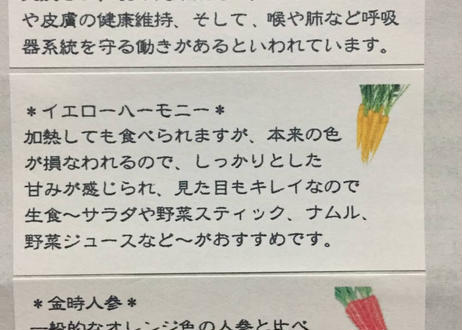 や皮膚の健康維持、そして、喉や肺など呼吸
器系統を守る働きがあるといわれています。
＊イエローハーモニー＊
加熱しても食べられますが、本来の色
が損なわれるので、しっかりとした
甘みが感じられ、見た目もキレイなので
生食～サラダや野菜スティック、ナムル、
野菜ジュースなど～がおすすめです。
＊金時人参＊
一般的なオレンジ色の人参と比べ